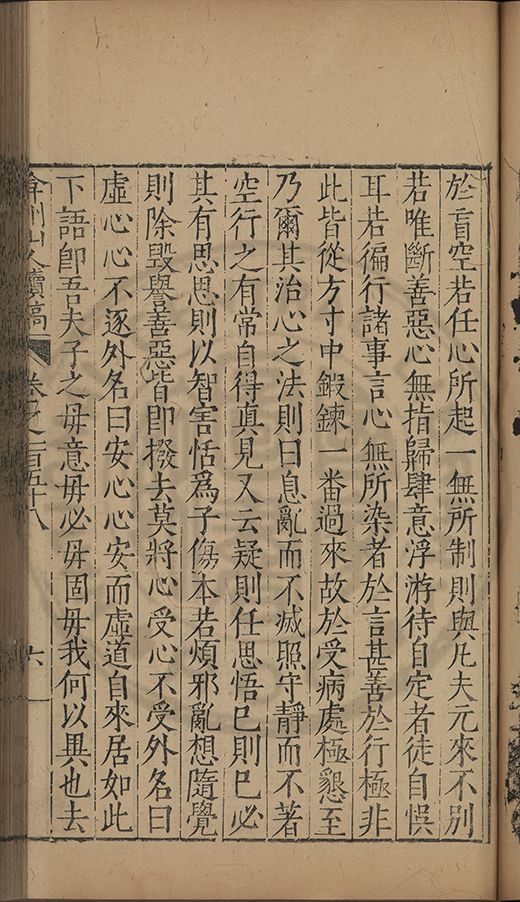 於盲空若任心所起一無所制則與凡夫元來不別
若唯斷善惡心無指歸肆意浮游待自定者徒自悞
耳若徧行諸事言心無所染者於言甚善於行極非
此皆從方寸中鍛鍊一番過來故於受病處極懇至
乃爾其治心之法則曰息亂而不滅照守靜而不著
空行之有常自得真見又云疑則任思悟已則已必
其有思思則以智害恬為子傷本若煩邪亂想隨覺
則除毀譽善惡皆即撥去莫將心受心不受外名曰
虛心心不逐外名曰安心心安而虛道自來居如此
下語即吾夫子之毋意毋必毋固毋我何以異也去
弇州山人續稿 卷之一百五十八 六